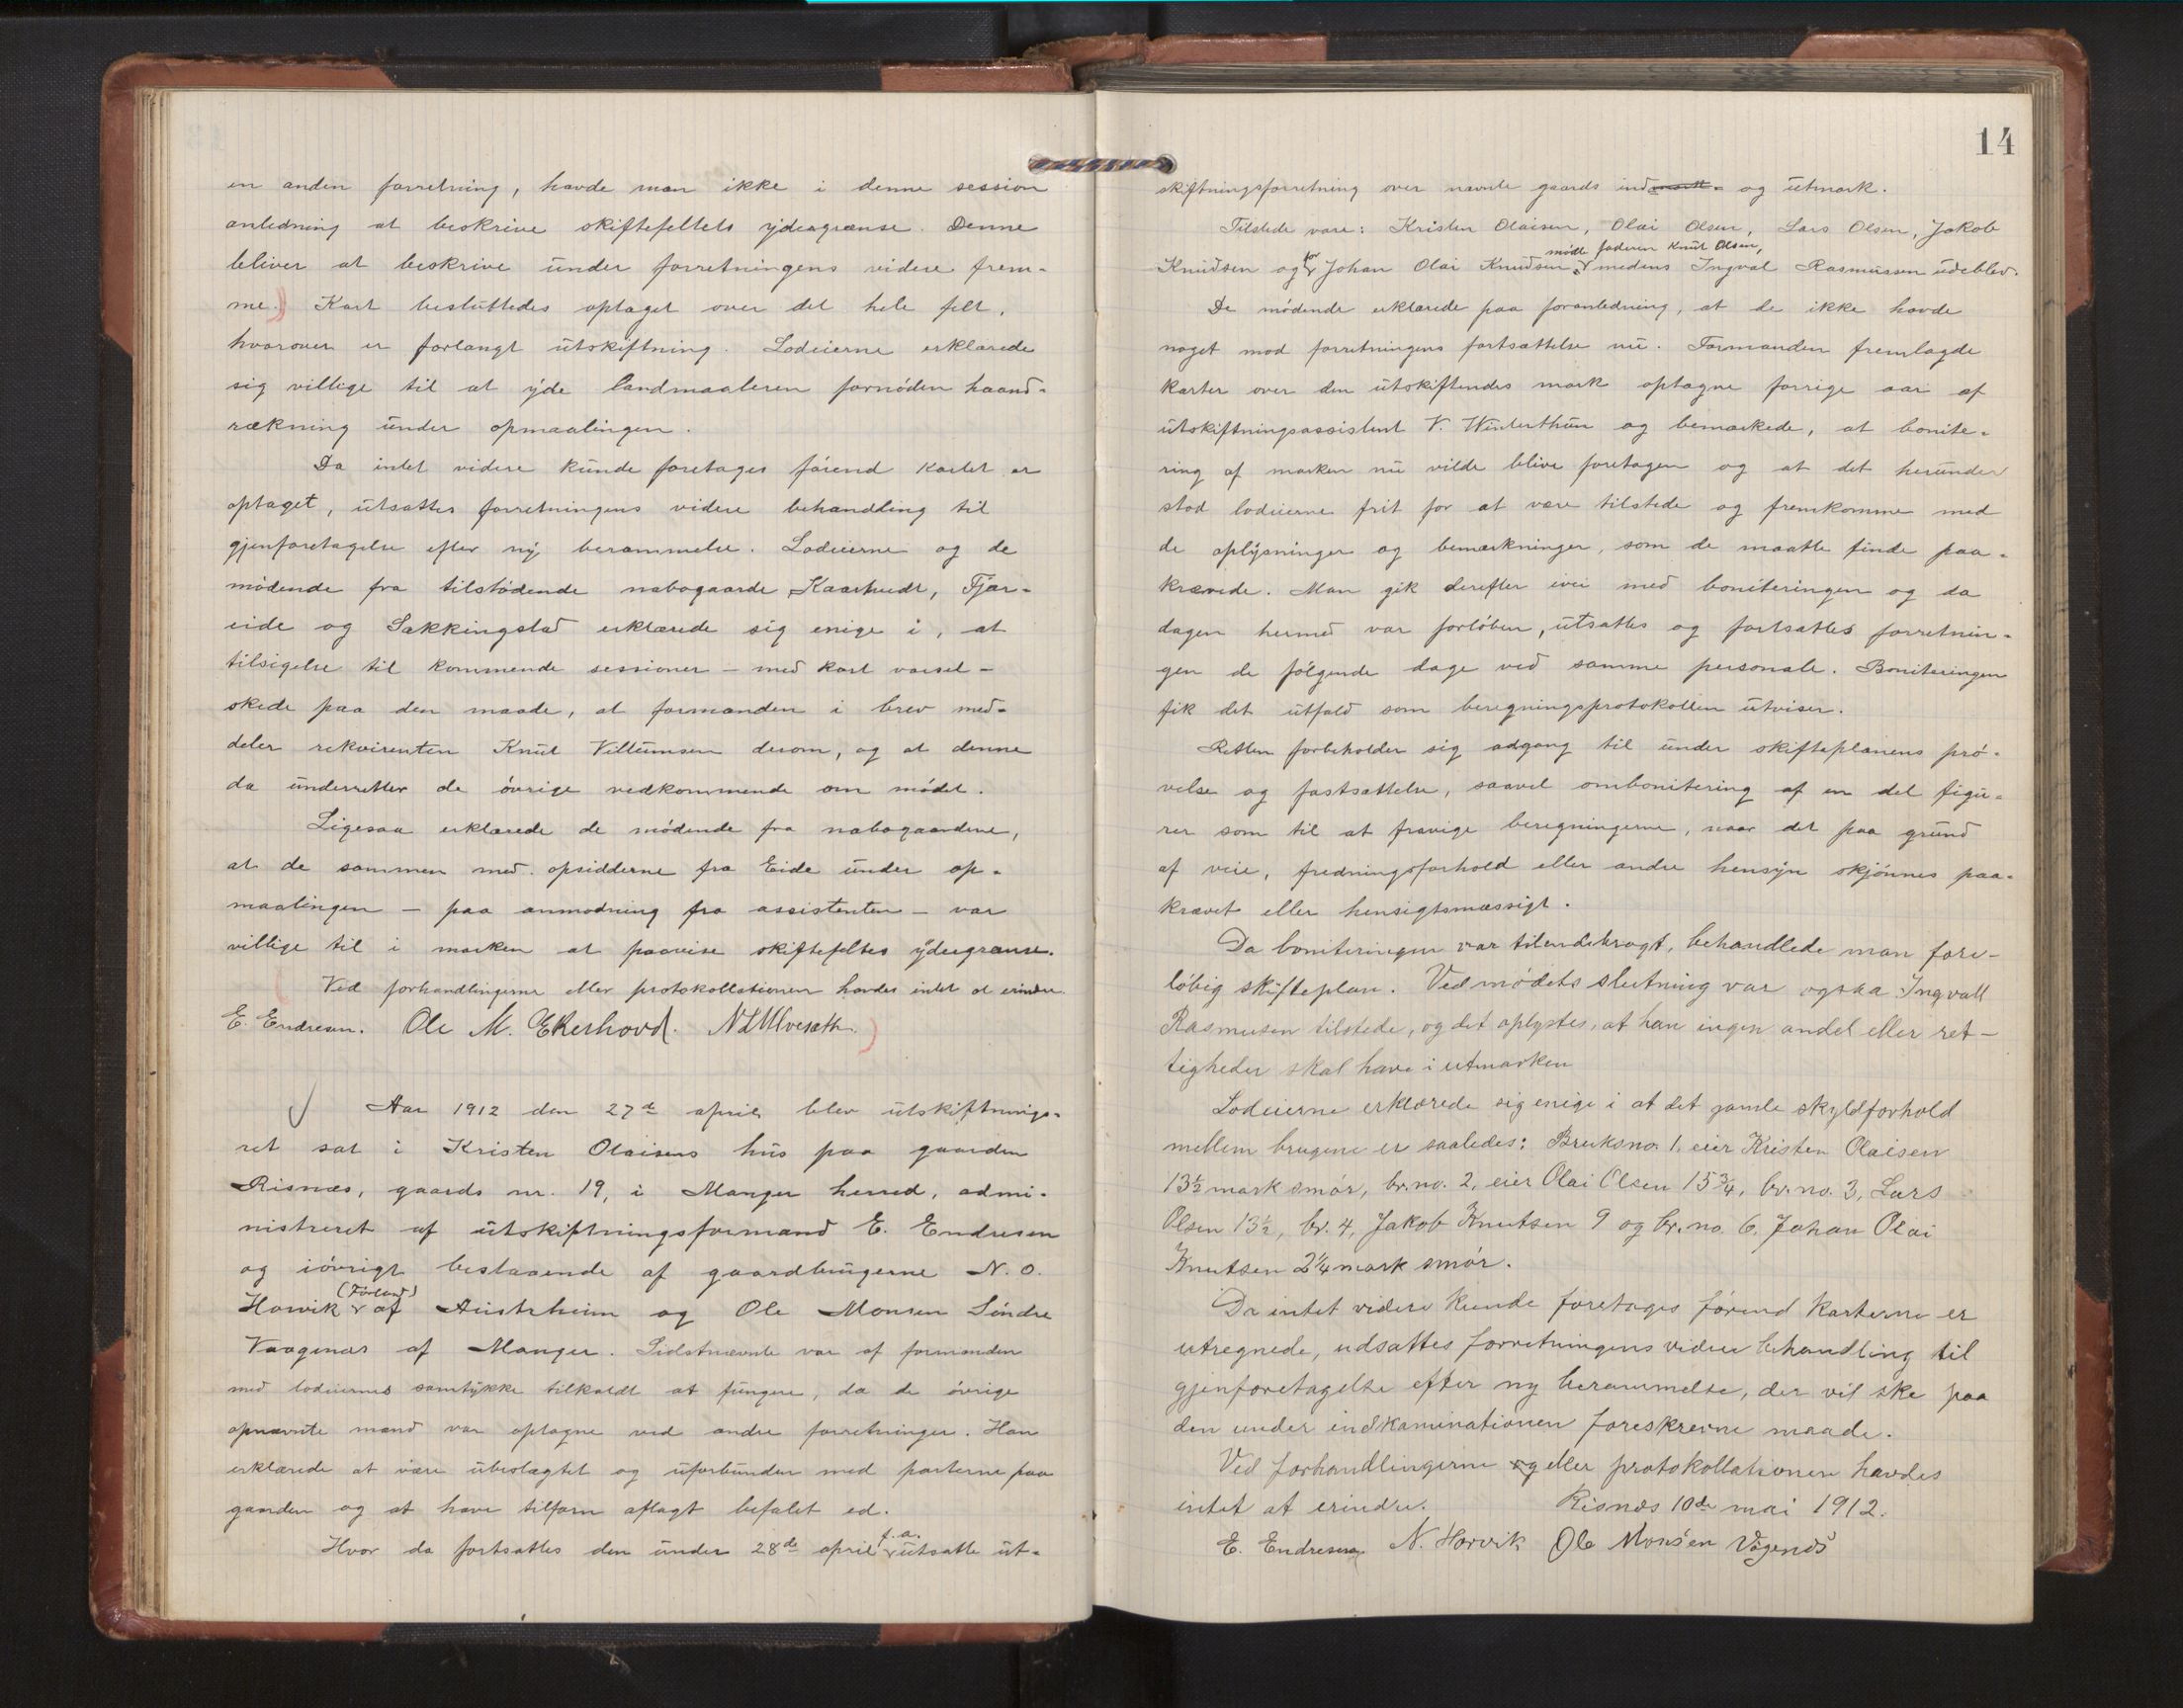 en anden forretning, havde man ikke i denne session
anledning at beskrive skiftefeltets ydergrænse. Denne
bliver at beskrive under forretningens videre frem-
me. Kart besluttedes optaget over det hele felt,
hvorover er forlangt utskiftning. Lodeierne erklærede
sig villige til at yde landmaaleren fornøden haand-
rækning under opmaalingen.
Da intet videre kunde foretages førend kartet er
optaget, utsattes forretningens videre behandling til
gjenforetagelse efter ny berammelse. Lodeierne og de
mødende fra tilstødende nabogaarde Kaarhvedt, Fjær-
eide og Sækkingstad erklærede sig enige i, at
tilsigelse til kommende sessioner – med kort varsel –
skede paa den maade, at formanden i brev med-
deler rekvirenten Knut Villumsen derom, og at denne
da underretter de øvrige vedkommende om mødet.
Ligesaa erklærede de mødende fra nabogaardene,
at de sammen med opsidderne fra Eide under op-
maalingen – paa anmodning fra assistenten – var
villige til i marken at paavise skiftefeltes ydergrænse.
Ved forhandlingerne eller protokollationen havdes intet at erindre.
E. Endresen. Ole M. Ekerhovd. N L Ulvesæth
Aar 1912 den 27de april blev utskiftnings-
ret sat i Kristen Olaisens hus paa gaarden
Risnæs, gaards nr. 19, i Manger herred, admi-
nistreret af utskiftningsformand E. Endresen
og iøvrigt bestaaende af gaardbrugerne N. O.
(Førland)
Horvik af Austrheim og Ole Monsen Søndre
Vaagenæs af Manger. Sidstnævnte var af formanden
med lodeiernes samtykke tilkaldt at fungere, da de øvrige
opnævnte mænd var optagne ved andre forretninger. Han
erklærede at være ubeslægtet og uforbunden med parterne paa
gaarden og at have tilforn aflagt befalet ed.
f. a.
Hvor da fortsattes den under 28de april utsatte ut-
14
skiftningsforretning over nævnte gaards indmark- og utmark.
Tilstede vare: Kristen Olaisen, Olai Olsen, Lars Olsen, Jakob
for mødte faderen Knut Olsen,
Knudsen og Johan Olai Knudsen medens Ingval Rasmussen udeblev.
De mødende erklærede paa foranledning, at de ikke havde
noget mod forretningens fortsættelse nu. Formanden fremlagde
karter over den utskiftendes mark optagne forrige aar af
utskiftningsassistent V. Winterthun og bemærkede, at bonite-
ring af marken nu vilde blive foretagen og at det herunder
stod lodeierne frit for at være tilstede og fremkomme med
de oplysninger og bemærkninger, som de maatte finde paa-
krævede. Man gik derefter ivei med boniteringen og da
dagen hermed var forløben, utsattes og fortsattes forretnin-
gen de følgende dage ved samme personale. Boniteringen
fik det utfald som beregningsprotokollen utviser.
Retten forbeholder sig adgang til under skifteplanens prø-
velse og fastsættelse, saavel ombonitering af en del figu-
rer som til at fravige beregningerne, naar det paa grund
af veie, fredningsforhold eller andre hensyn skjønnes paa-
krævet eller hensigtsmæssigt.
Da boniteringen var tilendebragt, behandlede man fore-
løbig skifteplan. Ved mødets slutning var ogsaa Ingvall
Rasmusen tilstede, og det oplystes, at han ingen andel eller ret-
tigheder skal have i utmarken
Lodeierne erklærede sig enige i at det gamle skyldforhold
mellem brugene er saaledes: Bruksno. 1, eier Kristen Olaisen
13½ mark smør, br.no. 2, eier Olai Olsen 15¾, br.no. 3, Lars
Olsen 13½, br. 4, Jakob Knutsen 9 og br.no. 6. Johan Olai
Knutsen 2¼ mark smør.
Da intet videre kunde foretages førend karterne er
utregnede, udsattes forretningens videre behandling til
gjenforetagelse efter ny berammelse, der vil ske paa
den under indkaminationen foreskrevne maade.
Ved forhandlingerne og eller protokollationen havdes
intet at erindre. Risnæs 10de mai 1912.
E. Endresen. N. Horvik Ole Monsen Vågenes